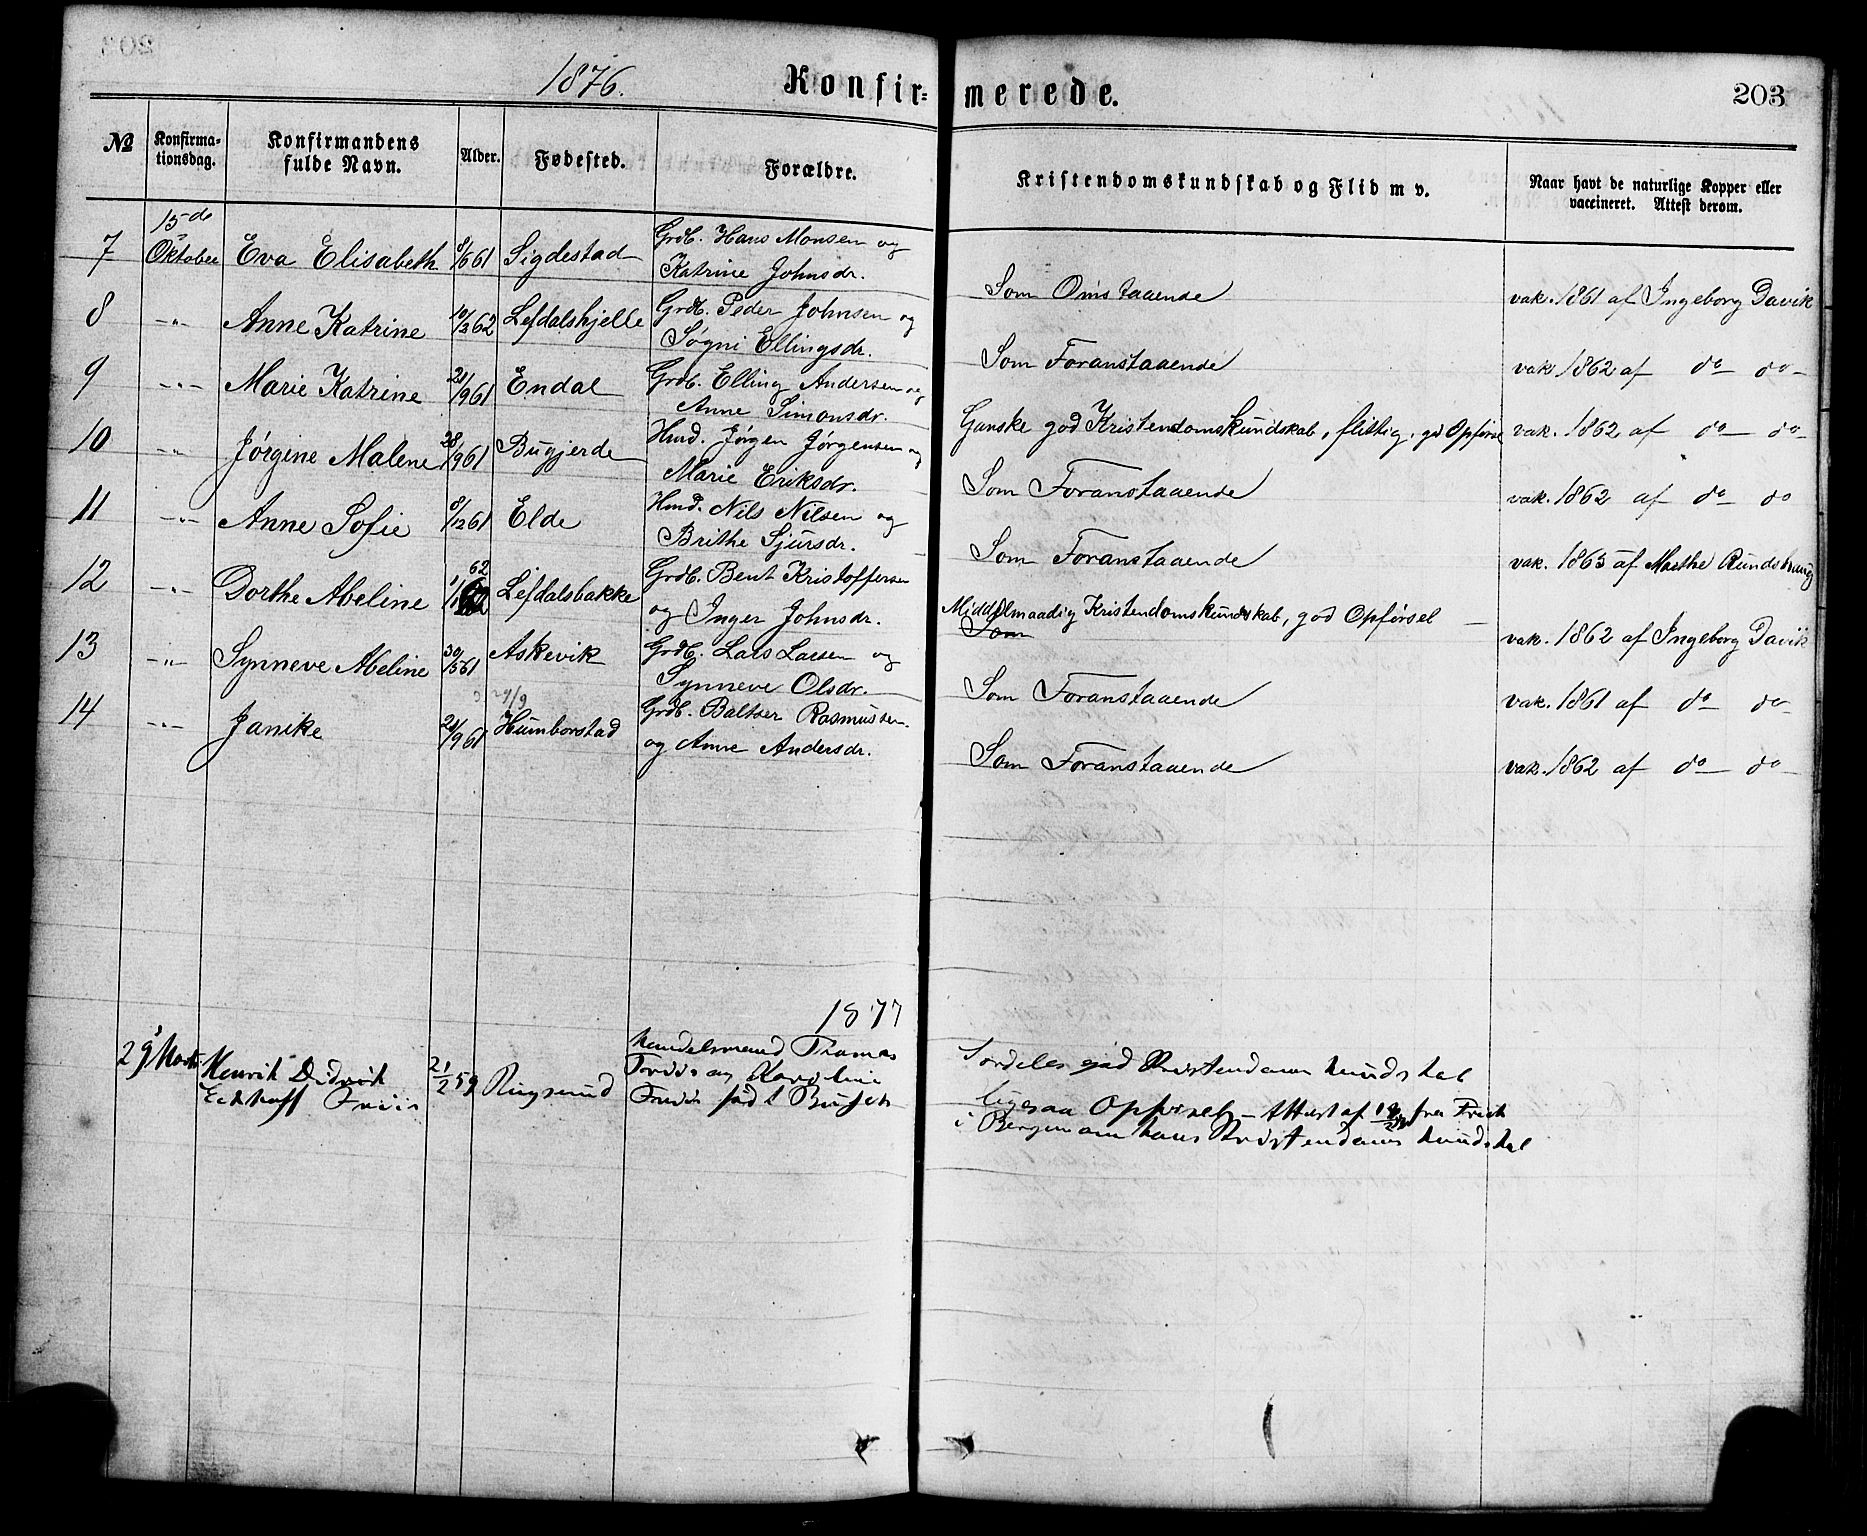 1876. Konfir= merede. 203
№ Konfirma-tionsdag. Konfirmandens fulde Navn. Alder. Fødested. Forældre. Kristendomskundskab og Flid m v. Naar havt de naturlige Kopper eller vaccineret. Attest derom.
15de
7 Oktober Eva Elisabeth 8/6 61 Sigdestad Grdb. Hans Monsen og
Katrine Johnsdr. Som Omstaaende vak. 1861 af Ingeborg Davik
8 -"- Anne Katrine 10/3 62 Lefdalshjelle Grdb. Peder Johnsen og
Søgni Ellingsdr. Som Foranstaaende vak 1862 af do do
9 -"- Marie Katrine 21/9 61 Endal Grdb. Elling Andersen og
Anne Simonsdr. Ganske god Kristendomskundskab, flittig, gd Opførsel vak. 1862 af do do
10 -"- Jørgine Malene 28/9 61 Bugjerde Hmd. Jørgen Jørgensen og
Marie Eriksdr. Som Foranstaaende vak. 1862 af do do
11 -"- Anne Sofie 8/12 61 Elde Hmd. Nils Nilsen og
Brithe Sjursdr. Som Foranstaaende vak. 1865 af Marthe
12 -"- Dorthe Abeline 1/1 62 Lefdalsbakke Grdb. Bent Kristoffersen
og Inger Johnsdr. Middelmaadig Kristendomskundskab, god Opførsel
Som vak. 1862 af Ingeborg Davik
13 -"- Synneve Abeline 30/5 61 Askevik Grdb. Lars Larsen og
Synneve Olsdr. Som Foranstaaende vak. 1861 af do do
29/9
14 -"- Janike 21/9 61 Humborstad Grdb. Baltser Rasmussen
og Anne Andersdr. Som Foranstaaende vak. 1862 af do do
1877
29 Marts Henrik Didrik 21/2 59 Rugsund Handelsmand Thomas
Eckhoff Friis Friis og Karoline
Friis født
Særdeles god Kristendomskundskab
ligesaa Opførsel – Attest af fra
i Bergen om hans Kristendomskundskab